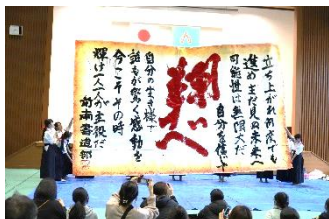 立ち上がれ何度でも
進め まだ見ぬ未来へ
可能性は無限大だ
自分を信じて
翔べ
自分の生き様で
誰もが驚く感動を
今こそその時
輝け一人一人が主役だ
前南書道部